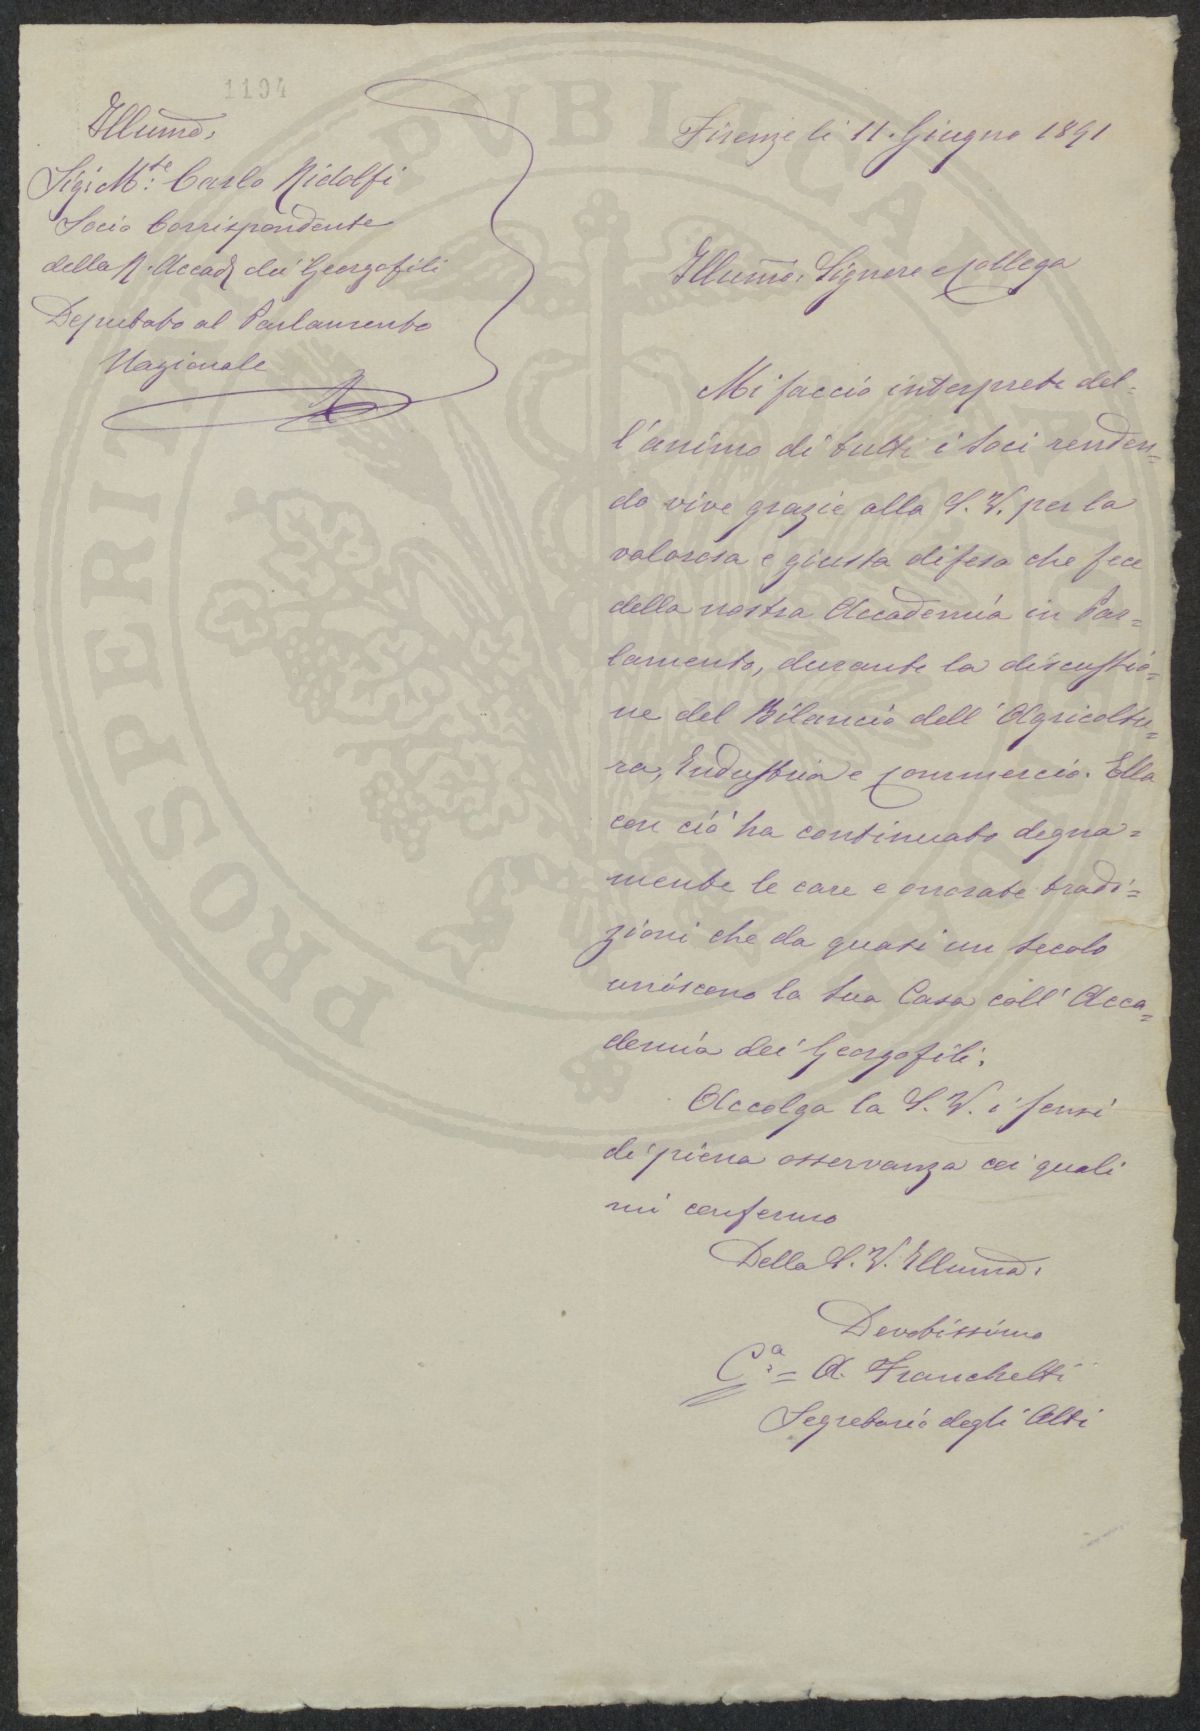 1194
Illumo:
Sigr Mte: Carlo Ridolfi
Socio Corrispondente
della R. Accada dei Georgofili
Deputato al Parlamento
Nazionale
Firenze li 11. Giugno 1891
Illumo: Signore e collega
Mi faccio interprete del-
l'animo di tutti i Soci renden=
do vive grazie alla S. V. per la
valorosa e giusta difesa che fece
della nostra Accademia in Par=
lamento, durante la discussio=
ne del Bilancio dell'Agricoltu=
ra, Industria e commercio. Ella
con ciò ha continuato degna=
mente le care e onorate tradi=
zioni che da quasi un secolo
uniscono la Sua Casa coll'Acca=
demia dei Georgofili.
Accolga la S. V. i sensi
di piena osservanza coi quali
mi confermo
Della S. V. Illuma:
Devotissimo
Ca:= A. Franchetti
Segretario degli Atti
PROSPERITATI PUBLICAE